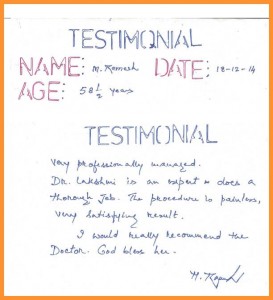 TESTIMONIAL
NAME: M. Ramesh DATE: 18-12-14
AGE: 58 1/2 years
TESTIMONIAL
Very professionally managed.
Dr. Lakshmi is an expert & does a
thorough Job. The procedure is painless,
very satisfying result.
I would really recommend the
Doctor. God bless her.